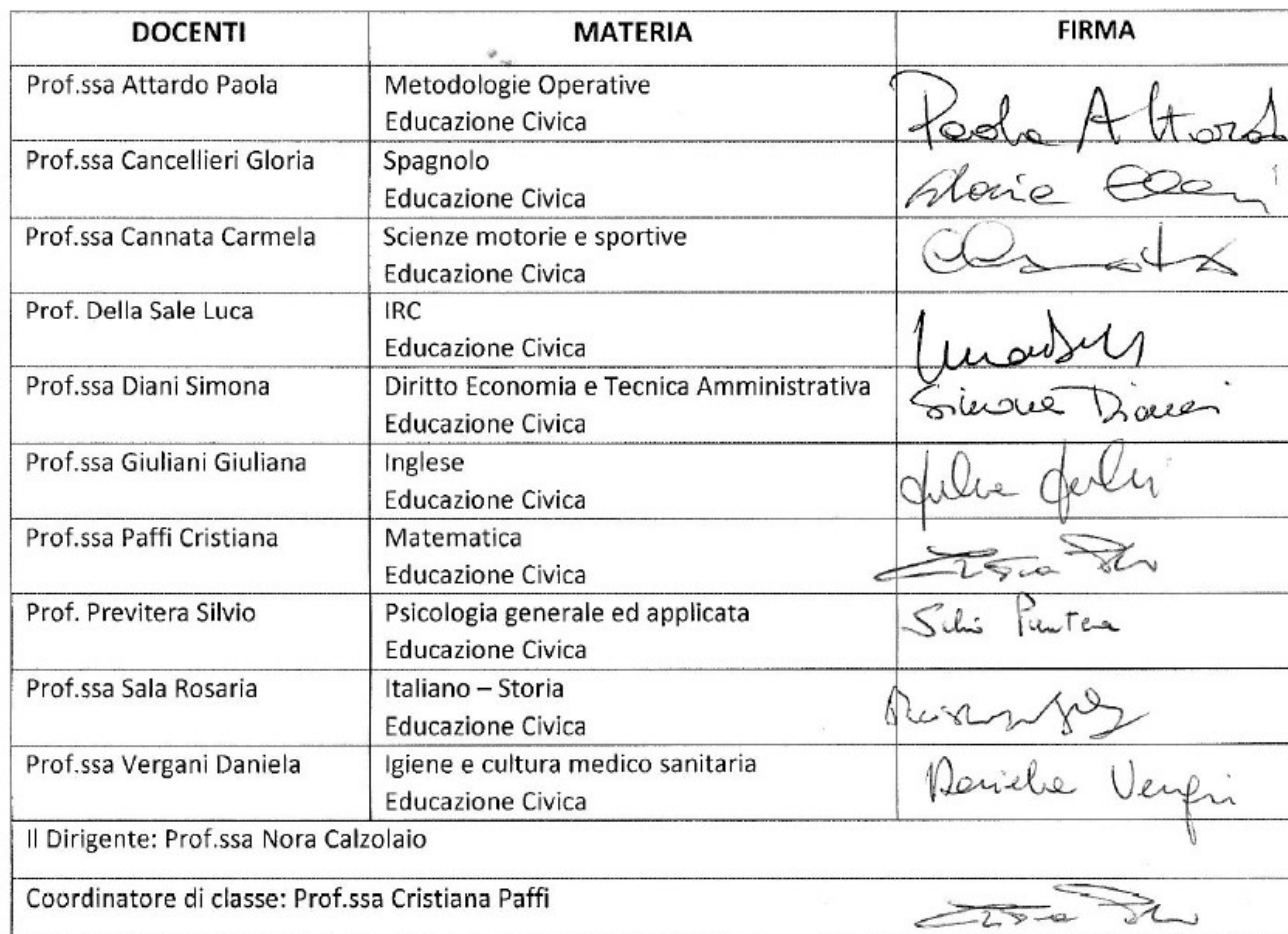 DOCENTI MATERIA FIRMA
Prof.ssa Attardo Paola Metodologie Operative
Educazione Civica Paola Attardo
Prof.ssa Cancellieri Gloria Spagnolo
Educazione Civica Gloria
Prof.ssa Cannata Carmela Scienze motorie e sportive
Educazione Civica
Prof. Della Sale Luca IRC
Educazione Civica
Prof.ssa Diani Simona Diritto Economia e Tecnica Amministrativa
Educazione Civica Simona Diani
Prof.ssa Giuliani Giuliana Inglese
Educazione Civica
Prof.ssa Paffi Cristiana Matematica
Educazione Civica
Prof. Previtera Silvio Psicologia generale ed applicata
Educazione Civica Silvio
Prof.ssa Sala Rosaria Italiano – Storia
Educazione Civica
Prof.ssa Vergani Daniela Igiene e cultura medico sanitaria
Educazione Civica Daniela Vergani
Il Dirigente: Prof.ssa Nora Calzolaio
Coordinatore di classe: Prof.ssa Cristiana Paffi